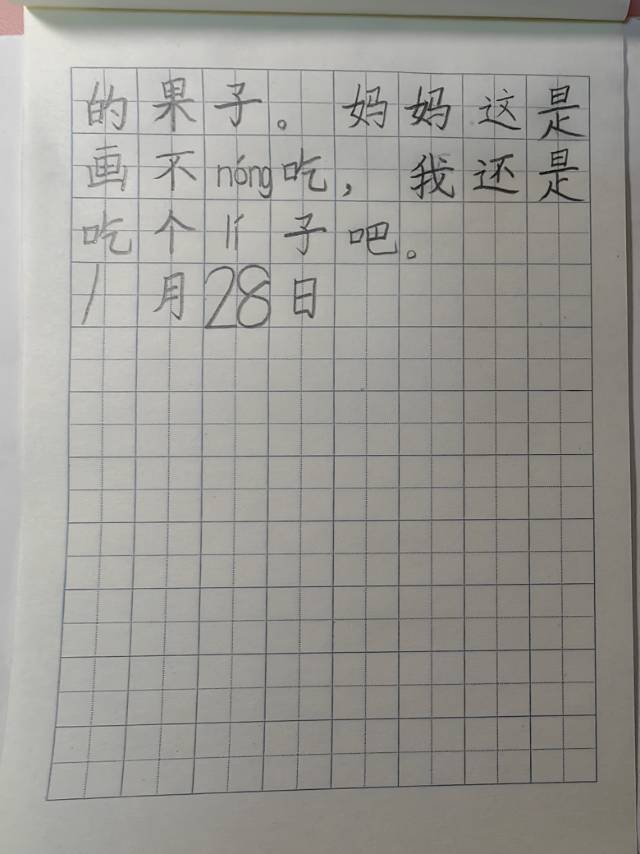 的果子。妈妈这是
画不nóng吃，我还是
吃个lí子吧。
1月28日